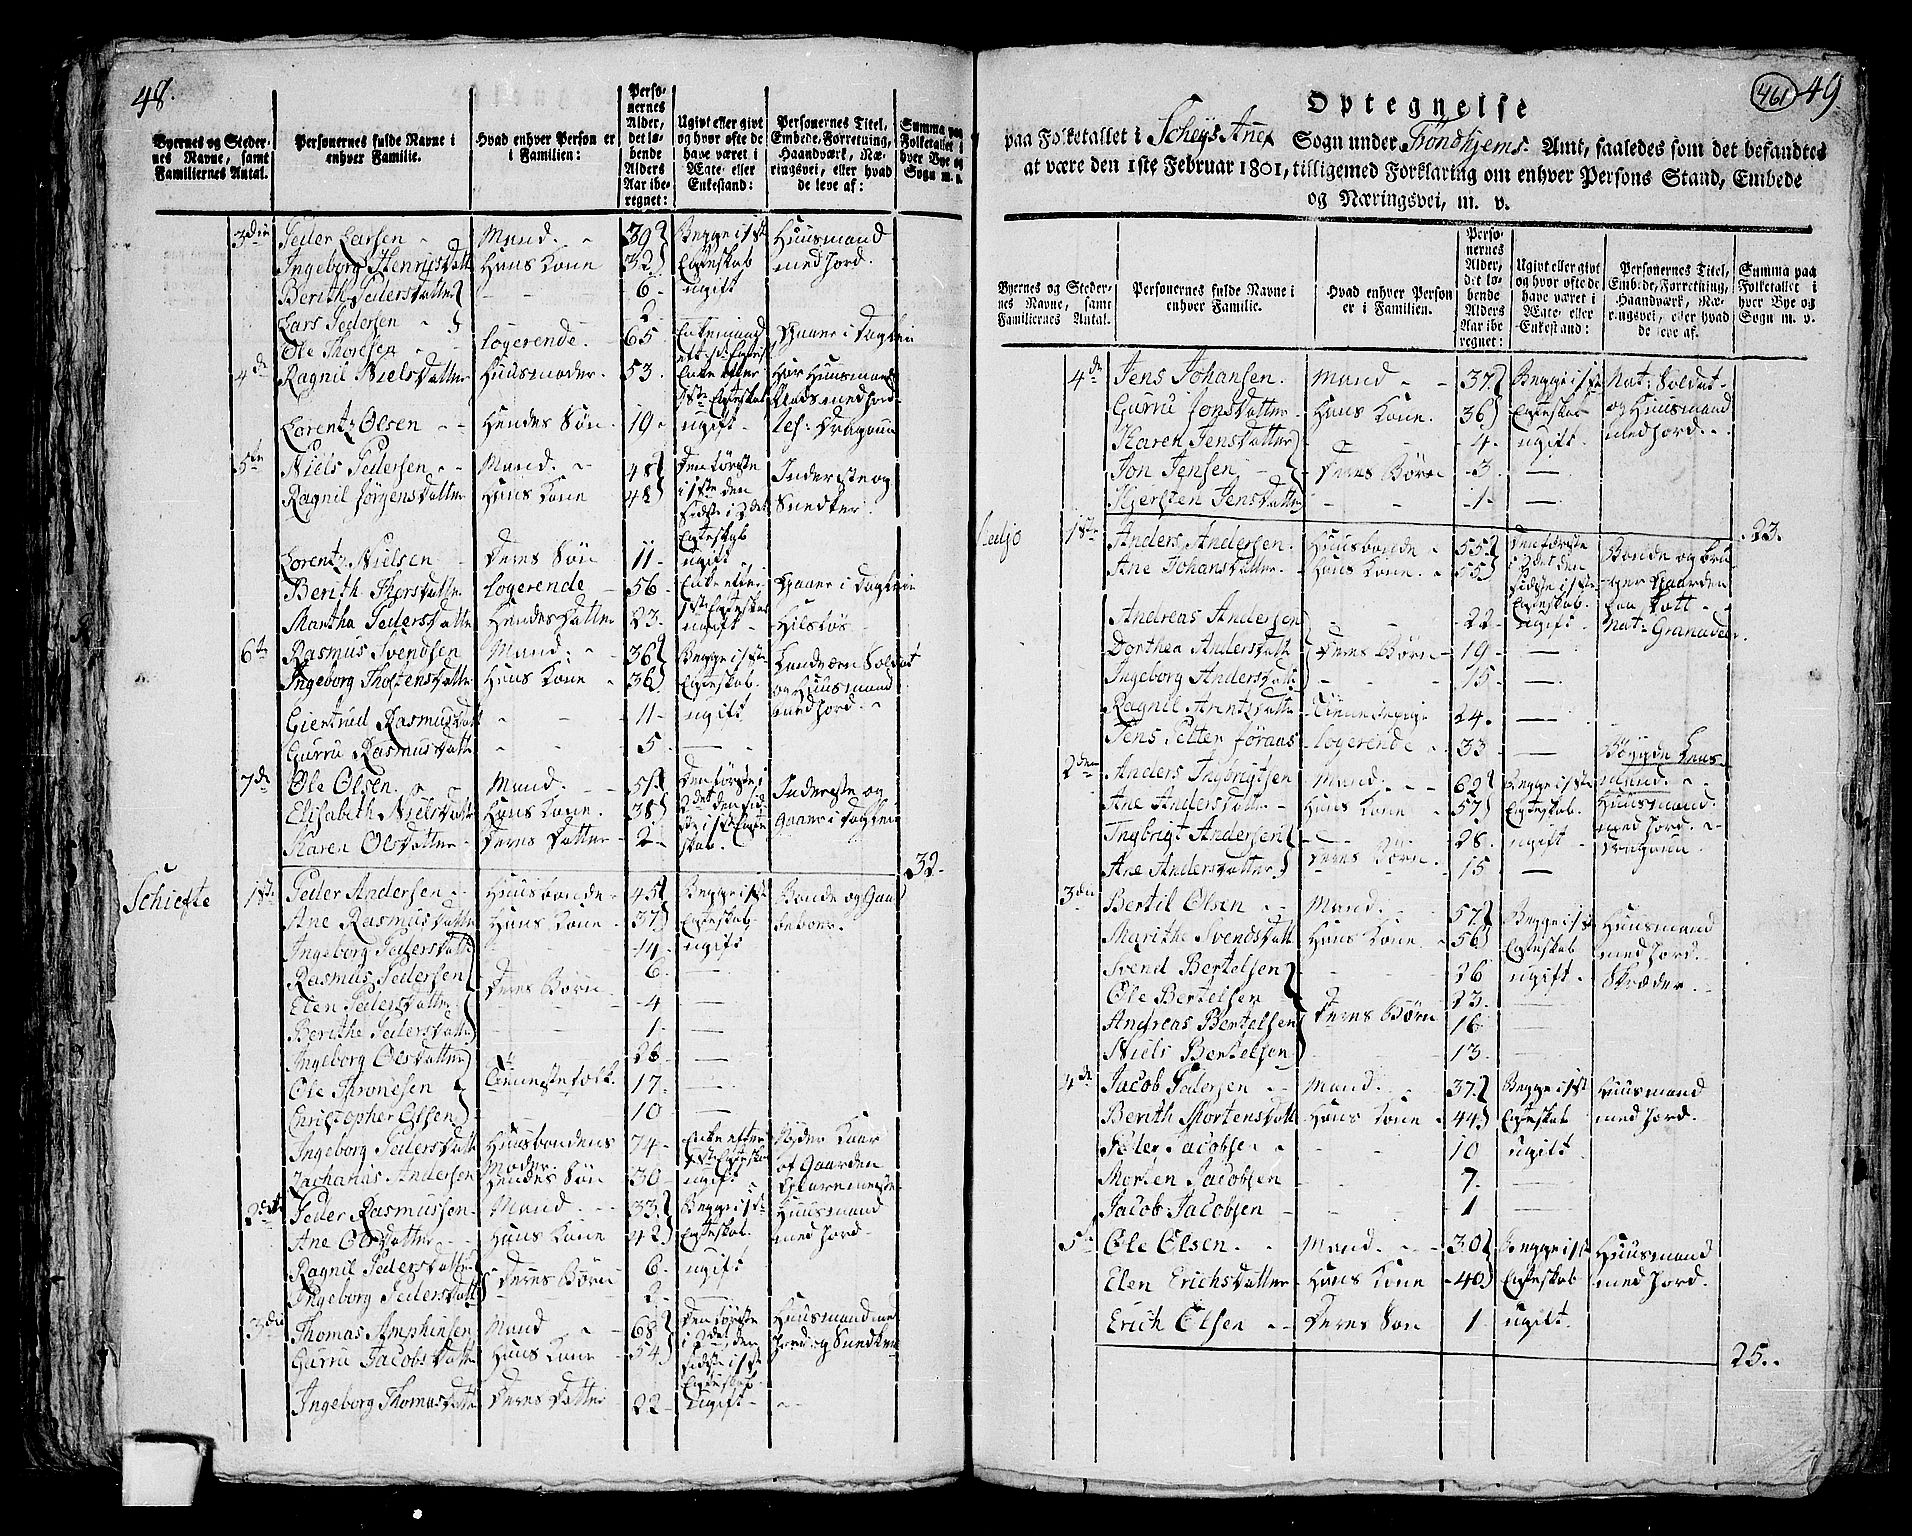 48.
Byernes og Steder-
nes Navne, samt
Familiernes Antal.
Personernes fulde Navne i
enhver Familie.
Hvad enhver Person er
i Familien:
Perso-
nernes
Alder,
det lø-
bende
Alders
Aar ibe-
regnet:
Ugivt eller givt
og hvor ofte de
have været i
Ægte- eller
Enkestand:
Personernes Titel,
Embede, Forretning,
Haandværk, Næ-
ringsvei, eller hvad
de leve af:
Summa paa
Folketallet i
hver Bye og
Sogn m. v.
3die Peder Larsen Mand. 39 Begge i 1ste Huusmand
Ingeborg Henrigsdatt Hans Kone 32 Egteskab med Jord.
Berith Pedersdatter 6 ugift
Lars Pedersen 2
Ole Thoresen logerende 65 Enkemand Gaaer i Dagleie
4de Ragnil Nielsdatter Huusmoder. 53 Enke efter Har Huusmands
1ste Egteskab Plads med Jord
Lorentz Olsen Hendes Søn 19 ugift Dragoun
5te Niels Pedersen Mand. 48 Den første Inderste og
Ragnil Jørgensdatter Hans Kone 48 i 1ste den Snedker.
sidste i 2det
Egteskab
Lorentz Nielsen Deres Søn 11 ugift
Berith Thorsdatter logerende 56 Enke efter Gaaer i Dagleie
1ste Egteskab
Martha Pedersdatter Hendes Datter 23 ugift
6te Rasmus Svendsen Mand. 36 Begge i 1ste Landværn Soldat
Ingeborg Thostensdatter Hans Kone 36 Egteskab. og Huusmand
Giertrud Rasmusdatt 11 ugift med Jord.
Gurru Rasmusdatter 5
7de Ole Olsen Mand. 51 Den første i Inderste og
Elisabeth Nielsdatter Hans Kone 38 2det den sid- Gaaer i Dagleie
ste i 1ste Egte
Karen Olsdatter Deres Datter 2 skab.
32
Schiefte 1ste Peder Andersen Huusbonde 45 Begge i 1ste Bonde og Gaard
Ane Rasmusdatter Hans Kone 37 Egteskab beboer.
Ingeborg Pedersdatt 14 ugift
Rasmus Pedersen 6
Elen Pedersdatter Deres Børn 4
Berithe Pedersdatter 1
Ingeborg Olsdatter 28
Ole Thronesen Tienestefolk. 17
Christopher Olsen 10
Ingeborg Pedersdatt Huusbondens 74 Enke efter Nyder Kaar
Moder. 1ste Egteskab af Gaarden
Zacharias Andersen Hendes Søn 30 ugift
2den Peder Rasmussen Mand 33 Begge i 1ste Huusmand
Ane Olsdatter Hans Kone 42 Egteskab. med Jord.
Ragnil Pedersdatter Deres Børn 6 ugift
Ingeborg Pedersdatt 2
3die Thomas Amphinsen Mand 68 Den første Huusmand med
Gurru Jacobsdatter Hans Kone 54 i 2det, den Jord og Snedker
sidste i 1ste
Egteskab
Ingeborg Thomasdatter Deres Datter 22 ugift
461
49
Optegnelse
paa Folketallet i Scheys Anex Sogn under Trondhjems Amt, saaledes som det befandtes
at være den 1ste Februar 1801, tilligemed Forklaring om enhver Persons Stand, Embede
og Næringsvei, m. v.
Byernes og Steder-
nes Navne, samt
Familiernes Antal.
Personernes fulde Navne i
enhver Familie.
Hvad enhver Person
er i Familien.
Perso-
nernes
Alder,
det lø-
bende
Alders
Aar ibe-
regnet:
Ugivt eller givt
og hvor ofte de
have været i
Ægte- eller
Enkestand:
Personernes Titel,
Embede, Forretning,
Haandværk, Næ-
ringsvei, eller hvad
de leve af.
Summa paa
Folketallet i
hver Bye og
Sogn m. v.
4de Jens Johansen. Mand 37 Begge i 1ste Nat: Soldat
Gurru Jonsdatter Hans Kone. 36 Egteskab og Huusmand
Karen Jensdatter 4 ugift. med Jord.
Jon Jensen Deres Børn 3
Kjersten Jensdatter 1
23.
1ste Anders Andersen. Huusbonde 55 Den første Bonde og bru-
Ane Johansdatter Hans Kone 55 i 2det den ger Gaarden
sidste i 1ste
Egteskab.
Andreas Andersen 22 ugift Nat: Granadeer.
Dorthea Andersdatt Deres Børn 19
Ingeborg Andersdatt 15
Ragnil Arentsdatter Tieneste pige 24
Jens Petter logerende 33 Bøygde Lens-
mand.
2den Anders Ingbrigtsen Mand. 62 Begge i 1ste Huusmand
Ane Andersdatter Hans Kone 57 Egteskab. med Jord.
Ingbrigt Andersen 28 ugift Dragoun
Ane Andersdatter Deres Børn 15
3die Bertil Olsen Mand. 57 Begge i 1ste Huusmand
Marithe Svendsdatt Hans Kone 56 Egteskab med Jord.
Svend Bertelsen 26 ugift Skræder.
Ole Bertelsen 23
Andreas Bertelsen Deres Børn 16
Niels Bertelsen 13
4de Jacob Pedersen Mand. 37 Begge i 1ste Huusmand
Berith Mortensdatt Hans Kone 44 Egteskab med Jord.
Peder Jacobsen 10 ugift
Morten Jacobsen 7
Jacob Jacobsen 1
5te Ole Olsen. Mand. 30 Begge i 1ste Huusmand
Elen Erichsdatter Hans Kone 40 Egteskab med Jord.
Erich Olsen Deres Søn 1 ugift
25.